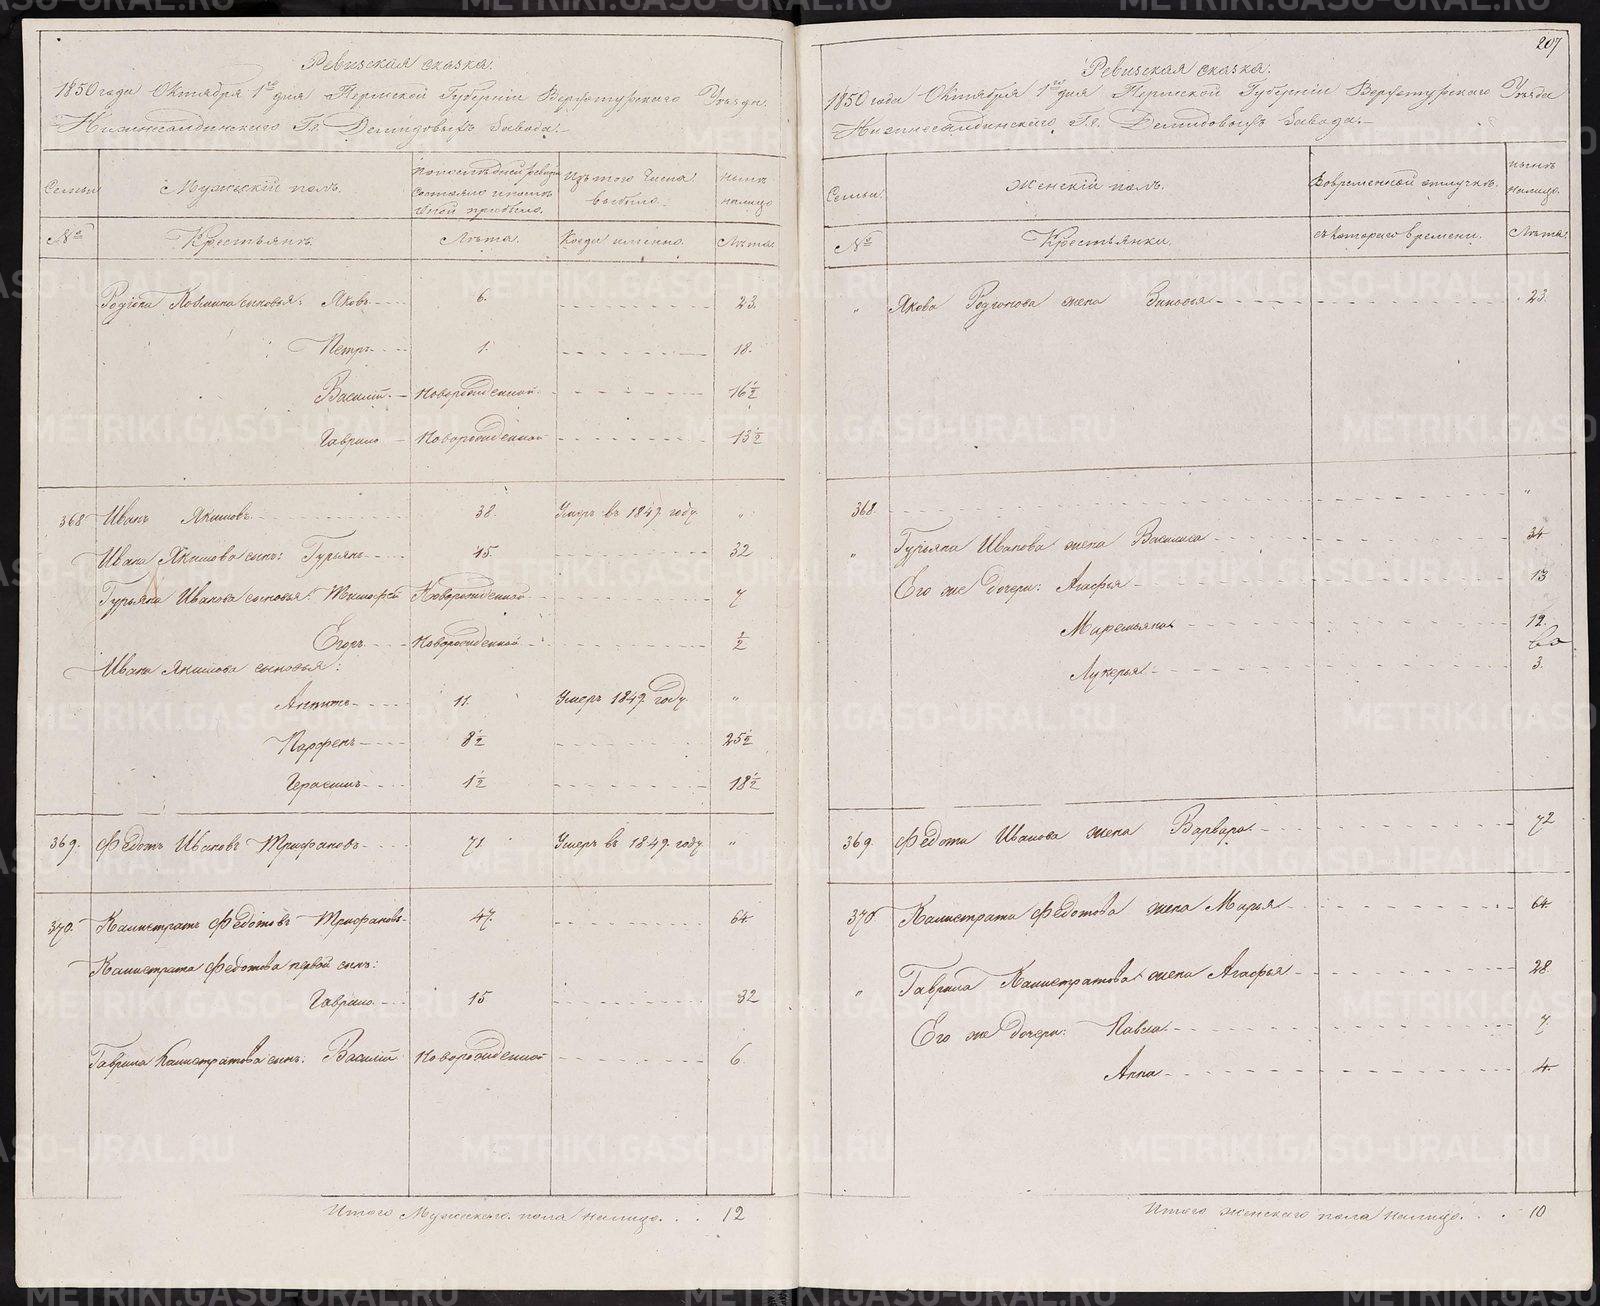 Ревизская сказка.
1850 года Октября 1го дня Пермской Губернiи Верхотурскаго Уѣзда
Нижнесалдинскаго Г.г. Демидовыхъ Завода.
Семьи Мужескiй полъ. По последней ревизiи состояло и после оной прибыло. Изъ того числа выбыло. Нынѣ налицо
№ Крестьянъ. Лѣта. Когда именно. Лѣта.
Родiона Козмина сыновья: Яковъ 6. 23.
Петръ 1. 18.
Василiй Новорожденной 16½
Гаврило Новорожденной 13½
368 Иванъ Якимовъ 38. Умеръ въ 1849. году „
Ивана Якимова сынъ: Гурьянъ 15. 32
Гурьяна Иванова сыновья: Тимофей Новорожденной 7
Егоръ Новорожденной ½
Ивана Якимова сыновья:
Антипъ 11. Умеръ 1849. году. „
Парфенъ 8½ 25½
Герасимъ 1½ 18½
369. Федотъ Ивановъ Трифановъ 71. Умеръ въ 1849. году „
370. Калистратъ Федотовъ Трифановъ 47. 64
Калистрата Федотова первой сынъ:
Гаврило 15 32
Гаврила Калистратова сынъ: Василiй Новорожденной 6.
Итого Мужескаго пола налицо 12
207
Ревизская сказка.
1850 года Октября 1го дня Пермской Губернiи Верхотурскаго Уѣзда
Нижнесалдинскаго Г.г. Демидовыхъ Завода.
Семьи. Женскiй полъ. Во временной отлучкѣ. Нынѣ налицо.
№ Крестьянки. съ котораго времени. Лѣта.
„ Якова Родiонова жена Зиновья 23.
368. „
„ Гурьяна Иванова жена Василиса 34
Его же дочери: Агафья 13
Маремьяна 12.
Лукерья 3.
369. Федота Иванова жена Варвара 72
370 Калистрата Федотова жена Марья 64.
„ Гаврила Калистратова жена Агафья 28.
Его же дочери: Павла 7.
Анна 4.
Итого женскаго пола налицо. 10
METRIKI.GASO-URAL.RU